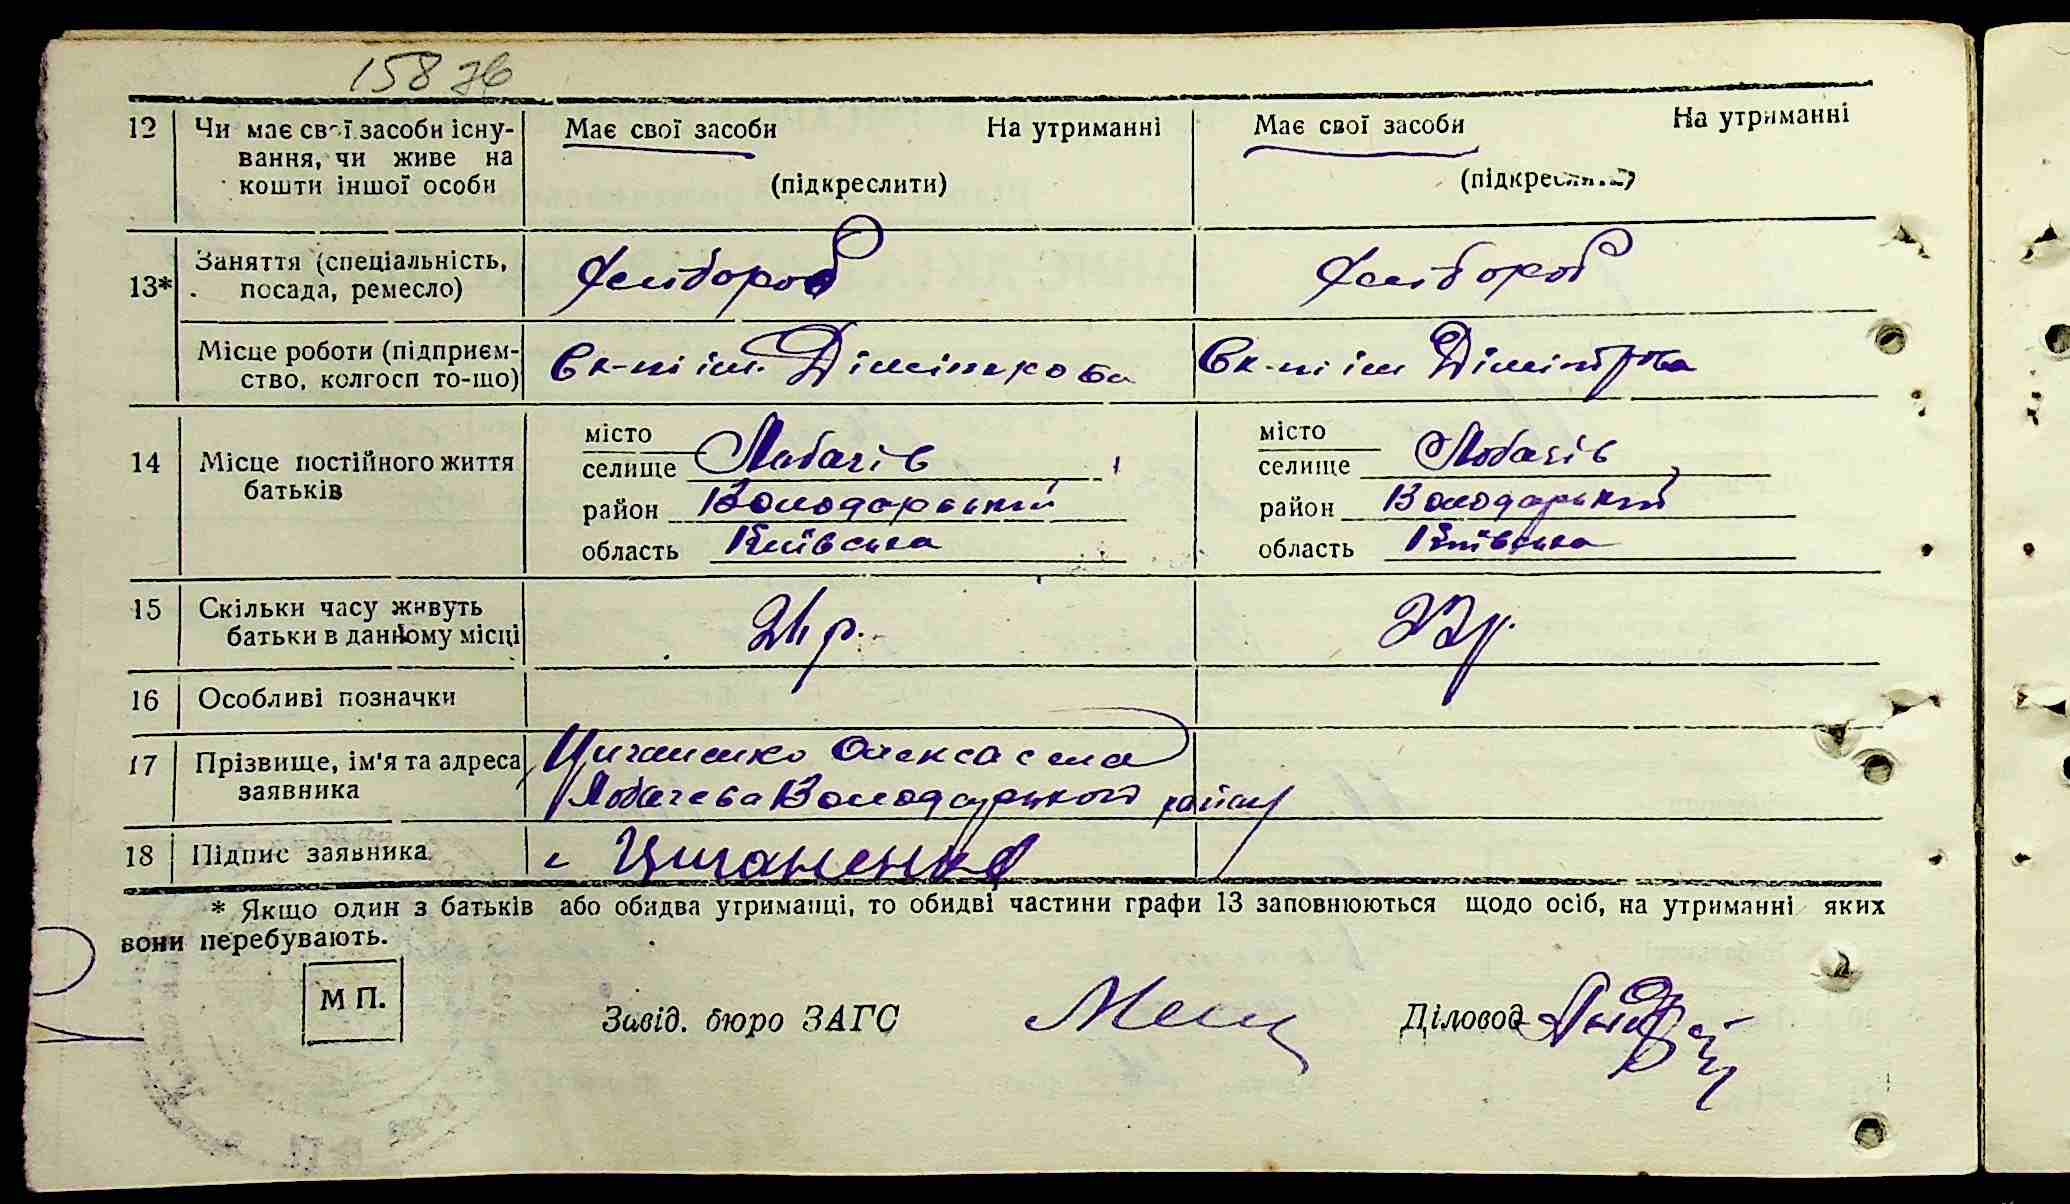 158 зв
12 Чи має свої засоби існу- Має свої засоби На утриманні Має свої засоби На утриманні
вання, чи живе на
кошти іншої особи (підкреслити) (підкреслити)
13* Заняття (спеціальність, хлібороб хлібороб
посада, ремесло)
Місце роботи (підприєм- ім. Дімітрова ім Дімітрова
ство, колгосп то-що)
14 Місце постійного життя батьків
місто місто
селище Лобачів селище Лобачів
район Володарський район Володарський
область Київська область Київська
15 Скільки часу живуть р. р.
батьки в данному місці
16 Особливі позначки
17 Прізвище, ім'я та адреса Циганенко
заявника Лобачева Володарського району
18 Підпис заявника Циганенко
* Якщо один з батьків або обидва утриманці, то обидві частини графи 13 заповнюються щодо осіб, на утриманні яких
вони перебувають.
М П.
Завід. бюро ЗАГС Діловод